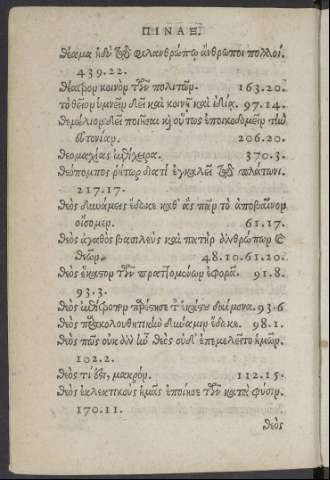 ΠΙΝΑΞ.
θέαμα ἡδὺ τῷ φιλανθρώπῳ ἄνθρωποι πολλοί.
439.22.
θέατρον κοινὸν τῶν πολιτῶν. 163.20.
τὸ θεῖον ὑμνεῖν δεῖ καὶ κοινῇ καὶ ἰδίᾳ. 97.14.
θεμέλιον δεῖ ποιῆσαι κỳ οὕτως ἐποικοδομεῖν τὴν
εὐτονίαν. 206.20.
θεομαχίας ἐπίχειρα. 370.3.
θεόπομπος ῥήτωρ διατί ἐγκαλεῖ τῷ πλάτωνι.
217.17.
θεὸς δυνάμεις ἔδωκε καθ' ἃς πᾶν τὸ ἀποβαῖνον
οἴσομεν. 61.17.
θεὸς ἀγαθὸς βασιλεὺς καὶ πατὴρ ἀνθρώπων &
θεῶν. 48.10.61.20.
θεὸς ἕκαστον τῶν πραττομένων ἐφορᾷ. 91.8.
93.3.
θεὸς ἐπίτροπον παρέστησε τ̀ ἑκάστου δαίμονα. 93.6
θεὸς παρακολουθητικὴν δύναμιν ἔδωκε. 98.1.
θεὸς πῶς οὐκ ἀν ἰὼ θεὸς οὐδ' ἐπεμελεῖτο ἡμῶν.
102.2.
θεὸς τί ἐστι, μακρόν. 112.15.
θεὸς ἐκλεκτικοὺς ἡμᾶς ἐποίησε τῶν κατὰ φύσιν.
170.11.
θεὸς